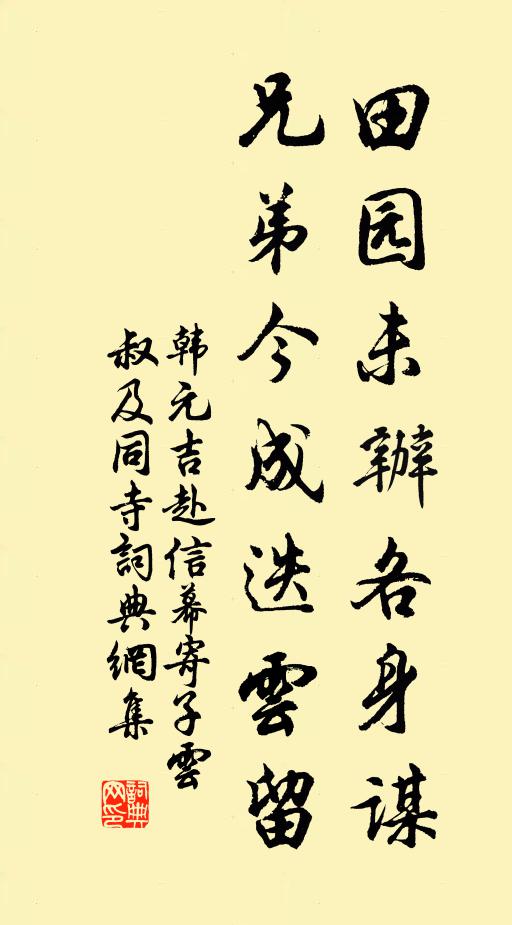 田园未辦各身謀
兄弟今成迭雲留
韩元吉赴信幕寄子雲
叔及同寺詞典網集
詞典網印